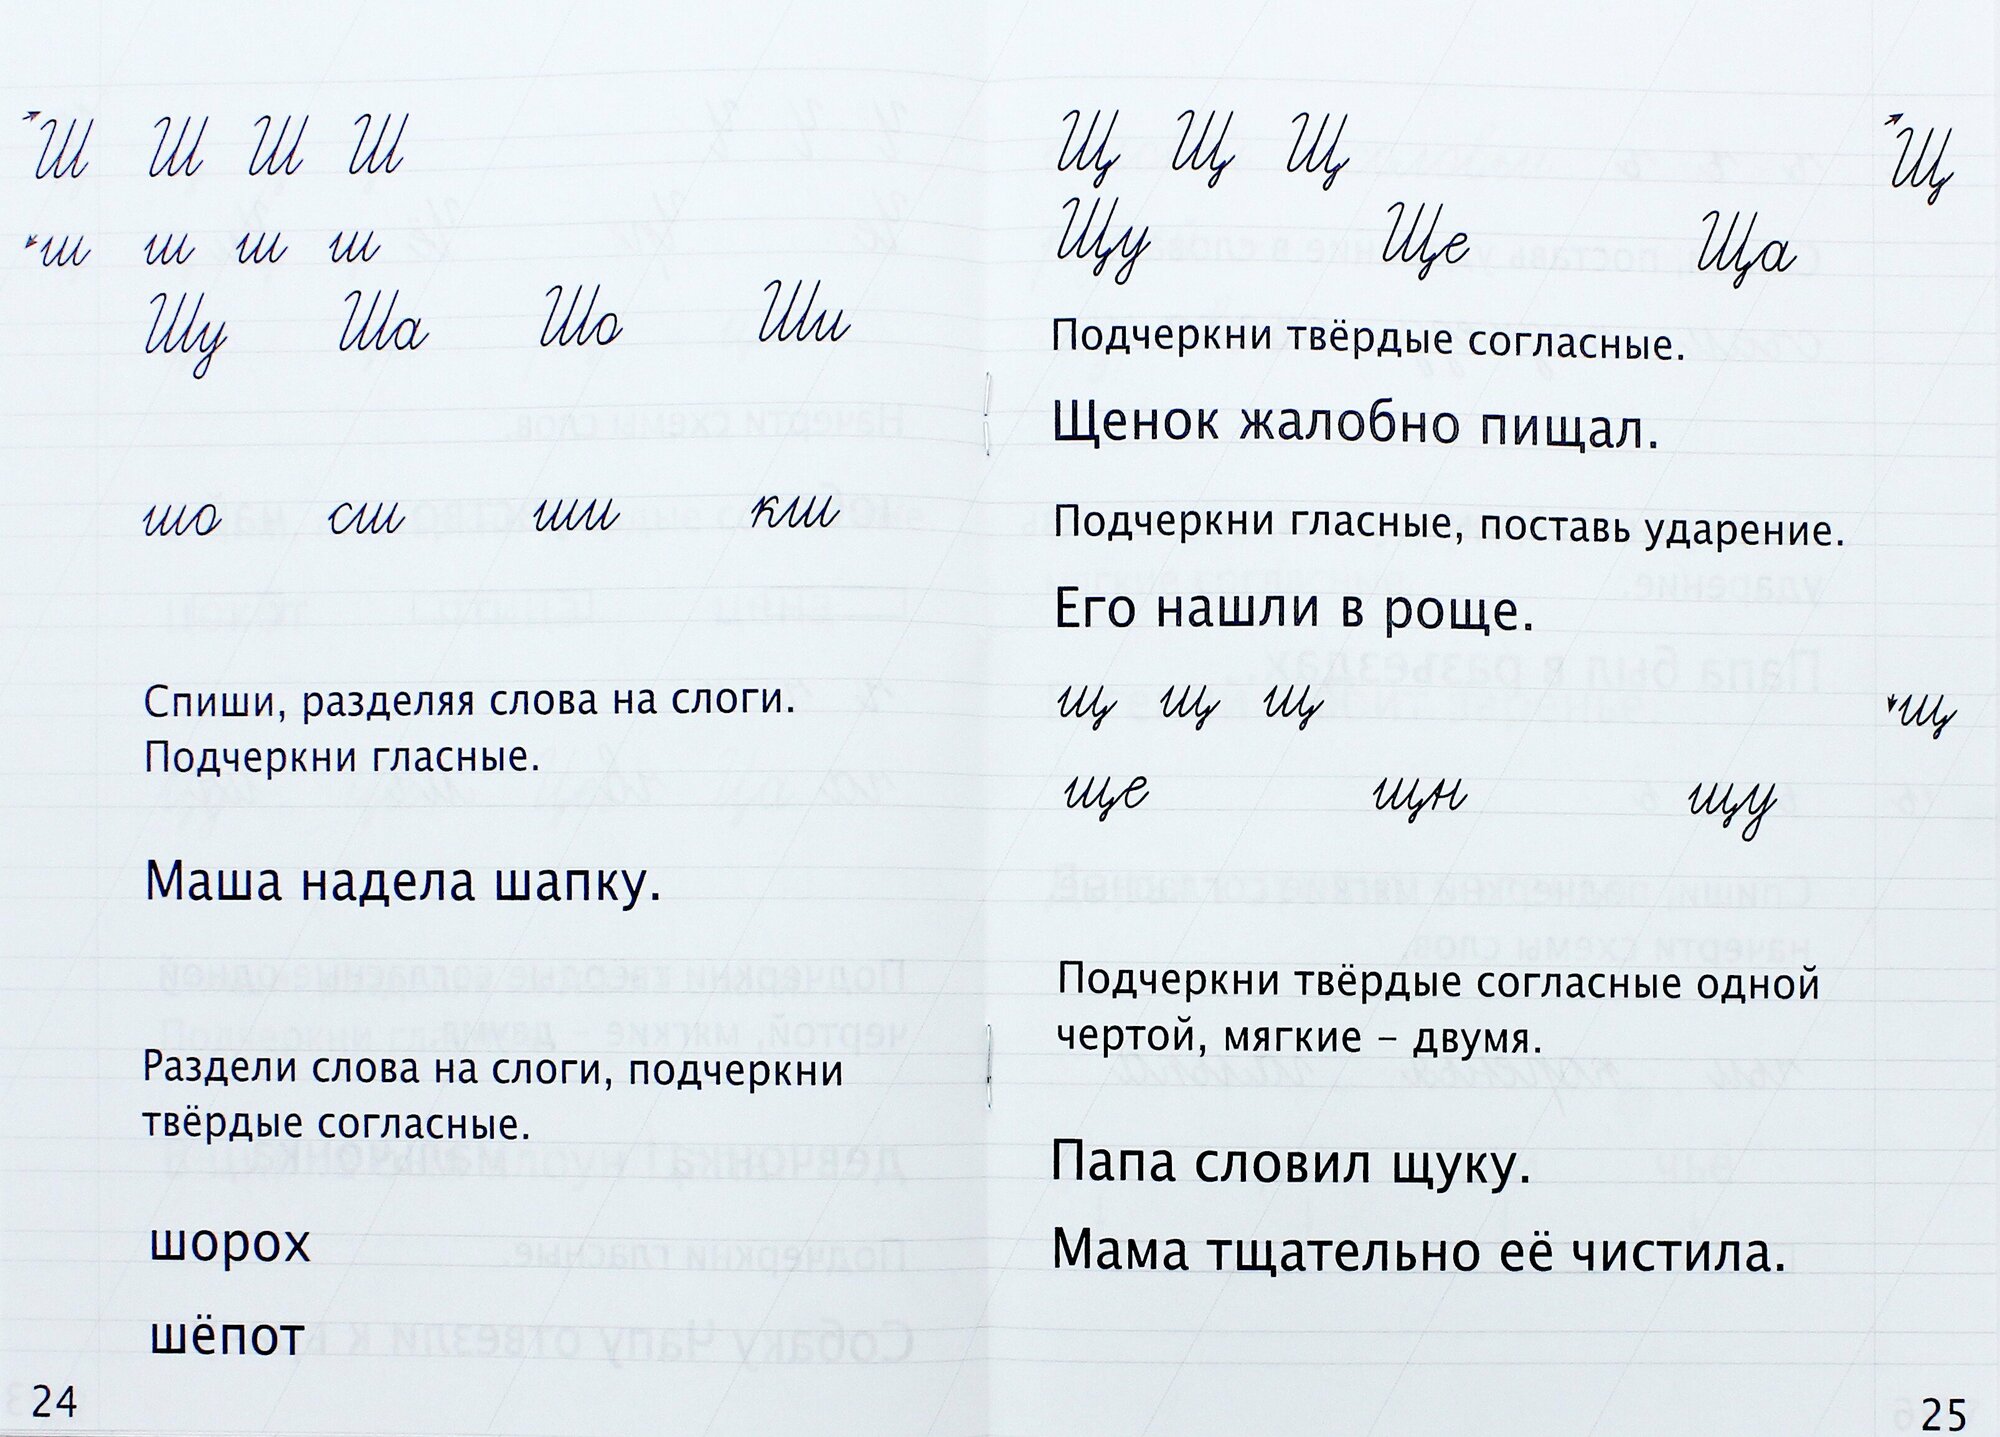 Ш Ш Ш Ш
ш ш ш ш
Шу Ша Шо Ши
шо сш ши кш
Спиши, разделяя слова на слоги.
Подчеркни гласные.
Маша надела шапку.
Раздели слова на слоги, подчеркни
твёрдые согласные.
шорох
шёпот
24
Щ Щ Щ Щ
Щу Ще Ща
Подчеркни твёрдые согласные.
Щенок жалобно пищал.
Подчеркни гласные, поставь ударение.
Его нашли в роще.
щ щ щ щ
ще щн щу
Подчеркни твёрдые согласные одной
чертой, мягкие – двумя.
Папа словил щуку.
Мама тщательно её чистила.
25